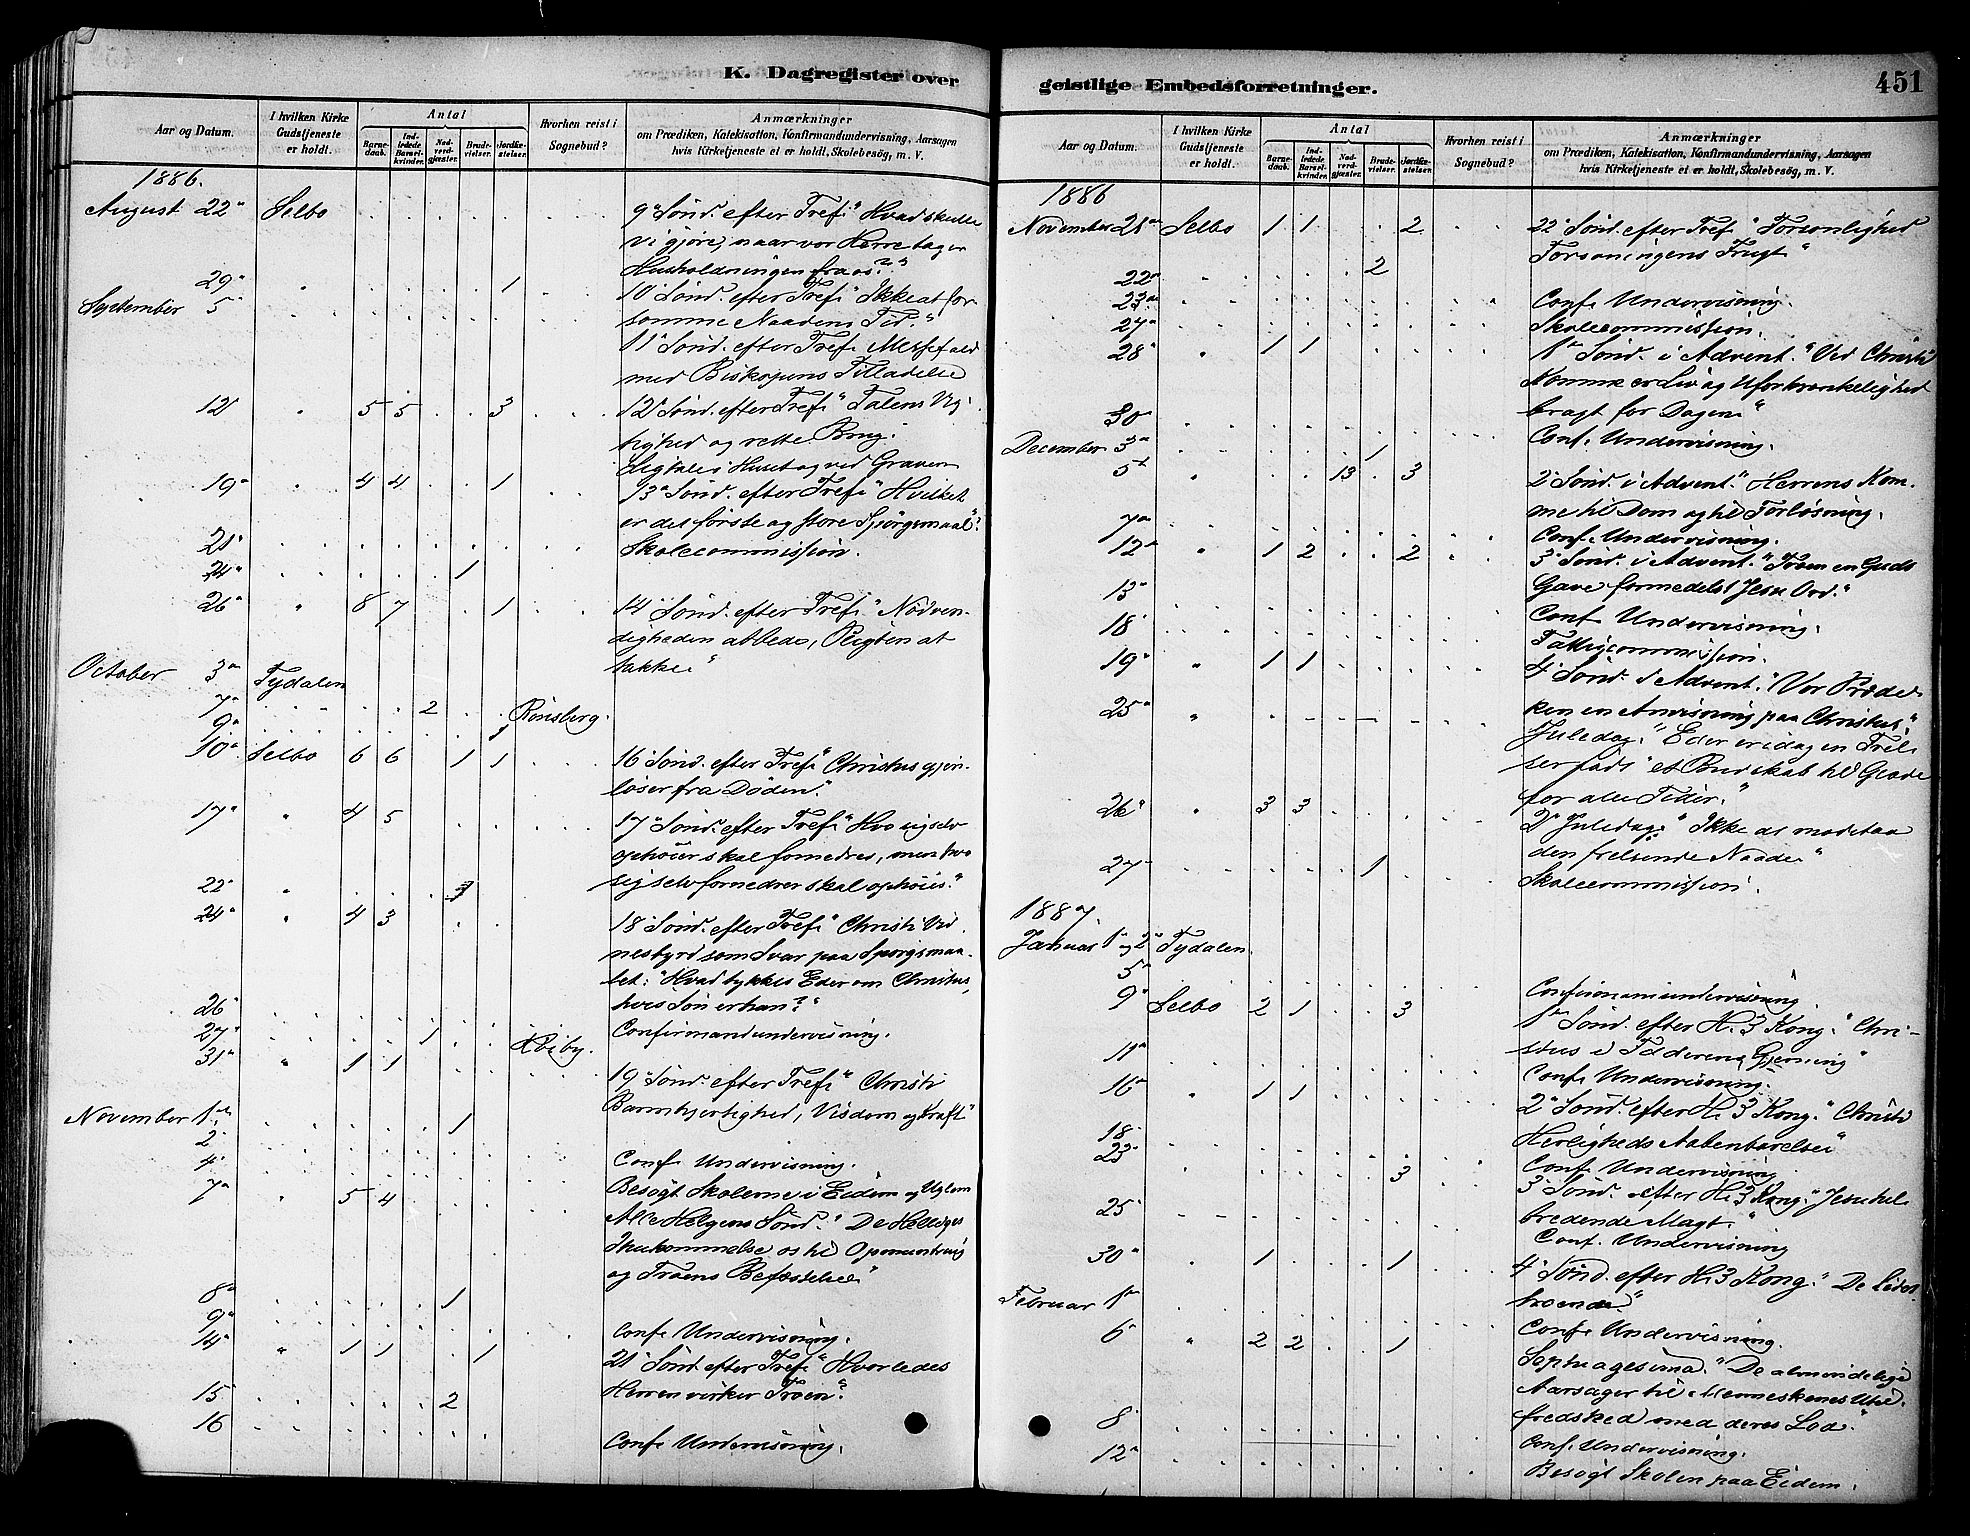 K. Dagregister over
Aar og Datum.
I hvilken Kirke Gudstjeneste er holdt.
Antal
Barnedaab.
Indledede Barselkvinder.
Nadverdgjæster.
Brudevielser.
Jordfæstelser.
Hvorhen reist i Sognebud?
Anmærkninger
om Prædiken, Katekisation, Konfirmandundervisning, Aarsagen
hvis Kirketjeneste ei er holdt, Skolebesög, m. V.
1886.
August 22 Selbo 9 Sönd. efter Tref. "Hvad skulle
vi gjöre, naar vor Herre tager
Husholdningen fra os?"
29 " 1 10 Sönd. efter Tref. "Ikke at for-
September 5 somme Naadens Tid."
11 Sönd. efter Tref. Messefald
med Biskopens Tilladelse
12 " 5 5 3 12 Sönd. efter Tref. "Talens Vig-
tighed og rette Brug.
Ligtale i Huset og ved Graven
19 " 4 4 1 13 Sönd. efter Tref. "Hvilket
er det første og store Spørgsmaal?
21 Skolecommission.
24 1
26 " 8 7 1 14 Sönd. efter Tref. "Nødven-
digheden at bede, Pligten at
takke"
October 3 Tydalen
7 2 Rönsberg.
9 1
10 Selbo 6 6 1 1 16 Sönd. efter Tref. "Christus gjen-
løser fra Døden."
17 " 4 5 17 Sönd. efter Tref. "Hvo sig selv
ophöier skal fornedres, men hvo
22 " sig selv fornedrer skal ophöies."
24 " 4 3 18 Sönd. efter Tref. "Christi Vid-
nesbyrd som Svar paa Spørgsmaa-
let: "Hvad tykkes Eder om Christus,
26 hvis Søn er han?"
27 1 Kvby. Confirmandundervisning.
31 " 1 1
19 Sönd. efter Tref. "Christi
Barmhjertighed, Visdom og Kraft"
November 1 1
2 Conf. Undervisning.
4 Besögt Skolerne i Eidem og Uglem
7 " 5 4 Alle Helgens Sönd. "De Helliges
Ihukommelse os til Opmuntring
og Troens Befæstelse"
8 1
9 Conf. Undervisning.
14 " 1 1 1 21 Sönd. efter Tref. "Hvorledes
Herren virker Troen"
15 2
16 Conf. Undervisning.
geistlige Embedsforretninger.
451
Aar og Datum.
I hvilken Kirke Gudstjeneste er holdt.
Antal
Barnedaab.
Indledede Barselkvinder.
Nadverdgjæster.
Brudevielser.
Jordfæstelser.
Hvorhen reist i Sognebud?
Anmærkninger
om Prædiken, Katekisation, Konfirmandundervisning, Aarsagen
hvis Kirketjeneste ei er holdt, Skolebesög, m. V.
1886
November 21 Selbo 1 1 2 22 Sönd. efter Tref. "Forsonlighed
Forsoningens Frugt"
22 2
23 Conf. Undervisning.
27 Skolecommission.
28 " 1 1 1 Sönd. i Advent. "Ved Christi
Komme er Liv og Uforkrænkelighed
bragt for Dagen"
30 Conf. Undervisning.
December 3 1
5 " 13 3 2 Sönd. i Advent. "Herrens Kom-
me til Dom og til Forløsning.
7 Conf. Undervisning.
12 " 1 2 2 3 Sönd. i Advent. "Troen en Guds
Gave formedelst Jesu Ord."
13 Conf. Undervisning.
18 Fattigcommission.
19 " 1 1 4 Sönd. i Advent. "Vor Præde-
ken en Anvisning paa Christus."
25 " Juledag. "Eder er idag en Frel-
ser född" et Budskab til Glæde
for alle Tider."
26 " 3 3 2 Juledag. "Ikke at modstaa
den frelsende Naade"
27 1 Skolecommission.
1887.
Januar 1 og 2 Tydalen
5 Confirmandundervisning.
9 Selbo 2 1 3 1 Sönd. efter H. 3 Kong. "Chri-
stus i Faderens Gjerning"
11 Conf. Undervisning.
16 " 1 1 2 Sönd. efter H. 3 Kong. "Christi
Herligheds Aabenbarelse"
18 Conf. Undervisning
23 3 3 Sönd. efter H. 3 Kong. "Jesu hel-
bredende Magt."
25 Conf. Undervisning
30 " 1 1 4 Sönd. efter H. 3 Kong. "De lidet
troende"
Februar 1 Conf. Undervisning.
6 " 2 2 1 Septuagesima. "De almindelige
Aarsager til Menneskenes Util-
fredshed med deres Lod."
8 Conf. Undervisning.
12 Besögt Skolen paa Eidem.